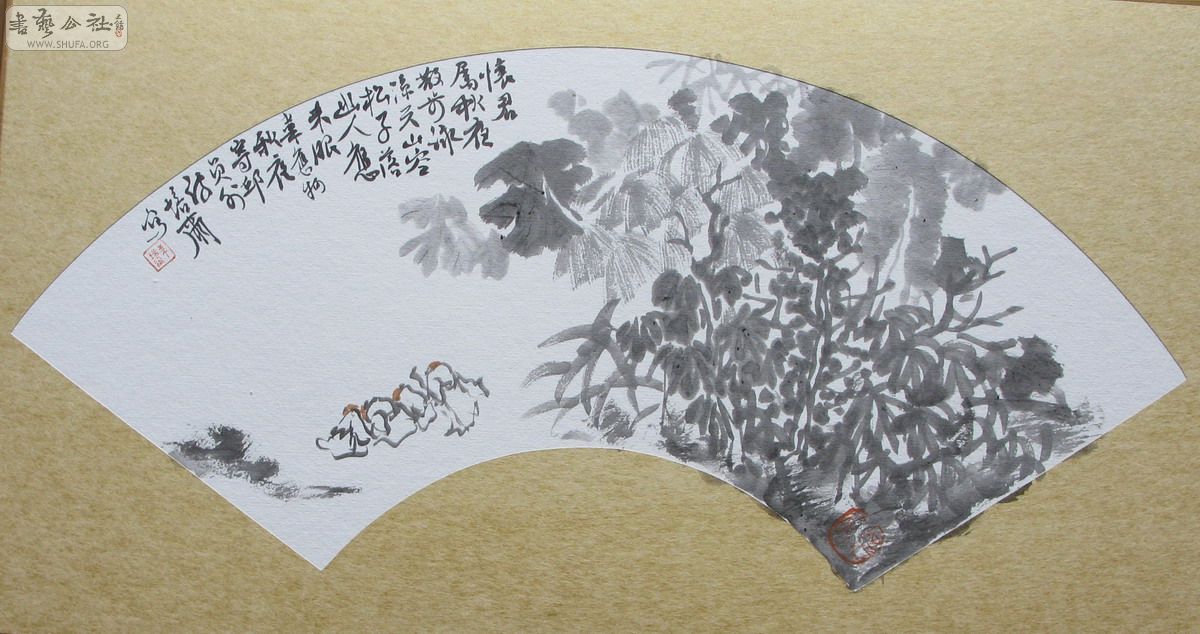 書藝公社
WWW.SHUFA.ORG
懷君
屬秋夜
散步詠
涼天山空
松子落
幽人應
未眠
韋應物
秋夜
寄邱
員外
詩